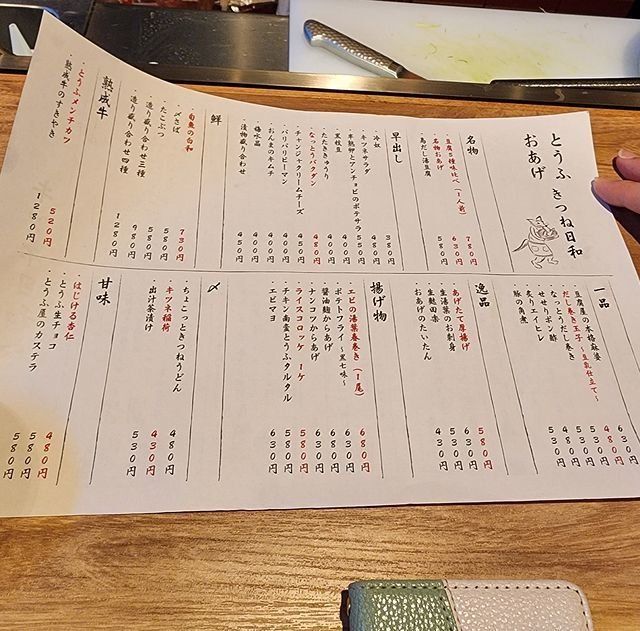 とうふ きつね日和
おあげ
名物
・豆腐5種味比べ(1人前) 780円
・名物おあげ 630円
・鳥だし湯豆腐 580円
早出し
・冷奴 380円
・キツネサラダ 480円
・半熟卵とアンチョビのポテサラ 550円
・枝豆 400円
・たたききゅうり 400円
・なっとうバクダン 480円
・チャンジャクリームチーズ 450円
・パリパリピーマン 400円
・おんまのキムチ 400円
・梅水晶 400円
・漬物盛り合わせ 450円
鮮
・白魚の白和 730円
・〆さば 580円
・たこぶつ 580円
・造り盛り合わせ三種 980円
・造り盛り合わせ四種 1280円
熟成牛
・とうふメンチカツ 520円
・熟成牛のすきやき 1280円
一品
・豆腐屋の本格麻婆 630円
・だし巻き玉子 ~豆乳仕立て~ 480円
・なっとうだし巻き
・せせりポン酢
・炙りエイヒレ
・豚の角煮
逸品
・あげたて厚揚げ 580円
・生湯葉のお刺身 630円
・生麩田楽 530円
・おあげのたいたん 430円
揚げ物
・エビの湯葉春巻き(1尾) 680円
・ポテトフライ ~黒七味~ 630円
・醤油麹からあげ 680円
・ナンコツからあげ 630円
・ライスコロッケ 1ケ 580円
・チキン南蛮とうふタルタル 580円
・エビマヨ 630円
〆
・ちょこっときつねうどん 480円
・キツネ稲荷 430円
・出汁茶漬け 530円
甘味
・はじける杏仁 480円
・とうふ生チョコ 580円
・とうふ屋のカステラ 580円